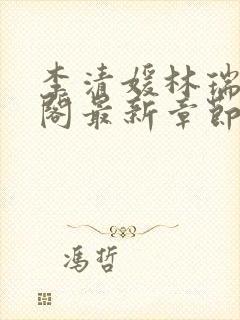 李清媛林瑞
阁最新章节
冯哲